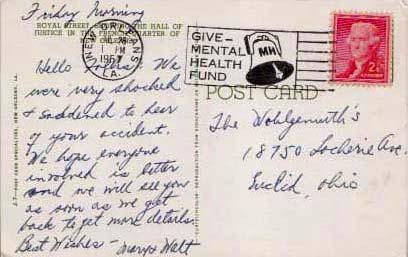 Friday Morning
ROYAL STREET SHOWING THE HALL OF
JUSTICE IN THE FRENCH QUARTER OF
NEW ORLEANS
Hello There: We
were very shocked
& saddened to hear
of your accident.
We hope everyone
involved is better
and we will see you
as soon as we get
back to get more details.
Best Wishes — Mary & Walt
NEW ORLEANS
1 PM
1967
LA.
GIVE-
MENTAL
HEALTH
FUND
MH
2¢
POST CARD
The Wohlgemuth's
18750 Locherie Ave.
Euclid, Ohio
POST CARD SPECIALTIES, NEW ORLEANS, LA.